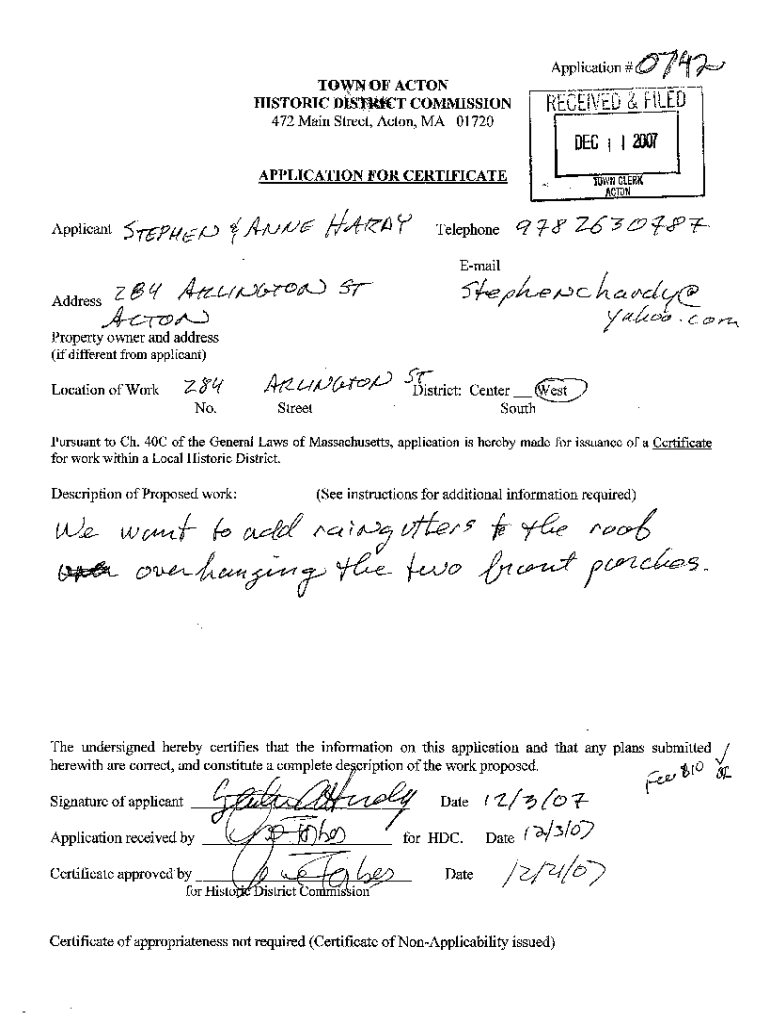 Application # 0742
TOWN OF ACTON
HISTORIC DISTRICT COMMISSION
472 Main Street, Acton, MA 01720
RECEIVED & FILED
DEC 11 2007
TOWN CLERK
ACTON
APPLICATION FOR CERTIFICATE
Applicant STEPHEN & ANNE HARDY Telephone 978 263 0787
E-mail
Address 284 ARLINGTON ST stephenchardy@
ACTON yahoo.com
Property owner and address
(if different from applicant)
Location of Work 284 ARLINGTON ST District: Center __ West
No. Street South
Pursuant to Ch. 40C of the General Laws of Massachusetts, application is hereby made for issuance of a Certificate
for work within a Local Historic District.
Description of Proposed work: (See instructions for additional information required)
We want to add raingutters to the roof
overhanging the two front porches.
The undersigned hereby certifies that the information on this application and that any plans submitted
herewith are correct, and constitute a complete description of the work proposed.
Fee $10
Signature of applicant Date 12/3/07
Application received by Forbes for HDC. Date 12/3/07
Certificate approved by Forbes Date 12/21/07
for Historic District Commission
Certificate of appropriateness not required (Certificate of Non-Applicability issued)